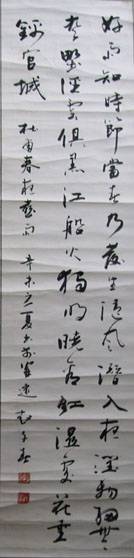 好雨知時節當春乃發生隨風潛入夜潤物細無
聲野徑雲俱黑江船火獨明曉看紅濕處花重
錦官城 杜甫春夜喜雨 辛未立夏